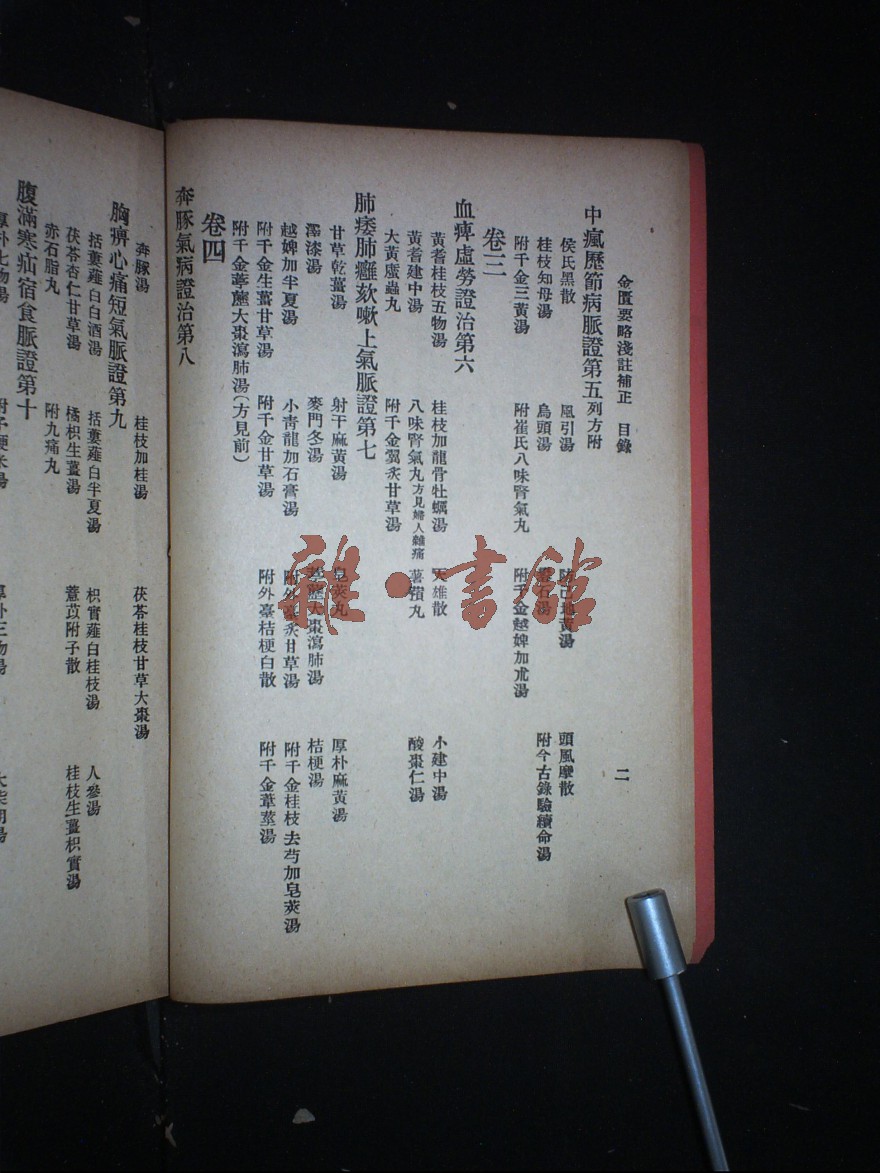 金匱要略淺註補正　目錄　二
中瘋歷節病脈證第五列方附
侯氏黑散　風引湯　防己地黃湯　頭風摩散
桂枝知母湯　烏頭湯　礬石湯　附今古錄驗續命湯
附千金三黃湯　附崔氏八味腎氣丸　附千金越婢加朮湯
卷三
血痺虛勞證治第六
黃耆桂枝五物湯　桂枝加龍骨牡蠣湯　天雄散　小建中湯
黃耆建中湯　八味腎氣丸方見婦人雜痛　薯蕷丸　酸棗仁湯
大黃䗪蟲丸　附千金翼炙甘草湯
肺痿肺癰欬嗽上氣脈證第七
甘草乾薑湯　射干麻黃湯　皂莢丸　厚朴麻黃湯
澤漆湯　麥門冬湯　葶藶大棗瀉肺湯　桔梗湯
越婢加半夏湯　小青龍加石膏湯　附外臺炙甘草湯　附千金桂枝去芍加皂莢湯
附千金生薑甘草湯　附千金甘草湯　附外臺桔梗白散　附千金葦莖湯
附千金葶藶大棗瀉肺湯(方見前)
卷四
奔豚氣病證治第八
奔豚湯　桂枝加桂湯　茯苓桂枝甘草大棗湯
胸痹心痛短氣脈證第九
括蔞薤白白酒湯　括蔞薤白半夏湯　枳實薤白桂枝湯　人參湯
茯苓杏仁甘草湯　橘枳生薑湯　薏苡附子散　桂枝生薑枳實湯
赤石脂丸　附九痛丸
腹滿寒疝宿食脈證第十
厚朴七物湯　附子粳米湯　厚朴三物湯　大柴胡湯
雜·書館